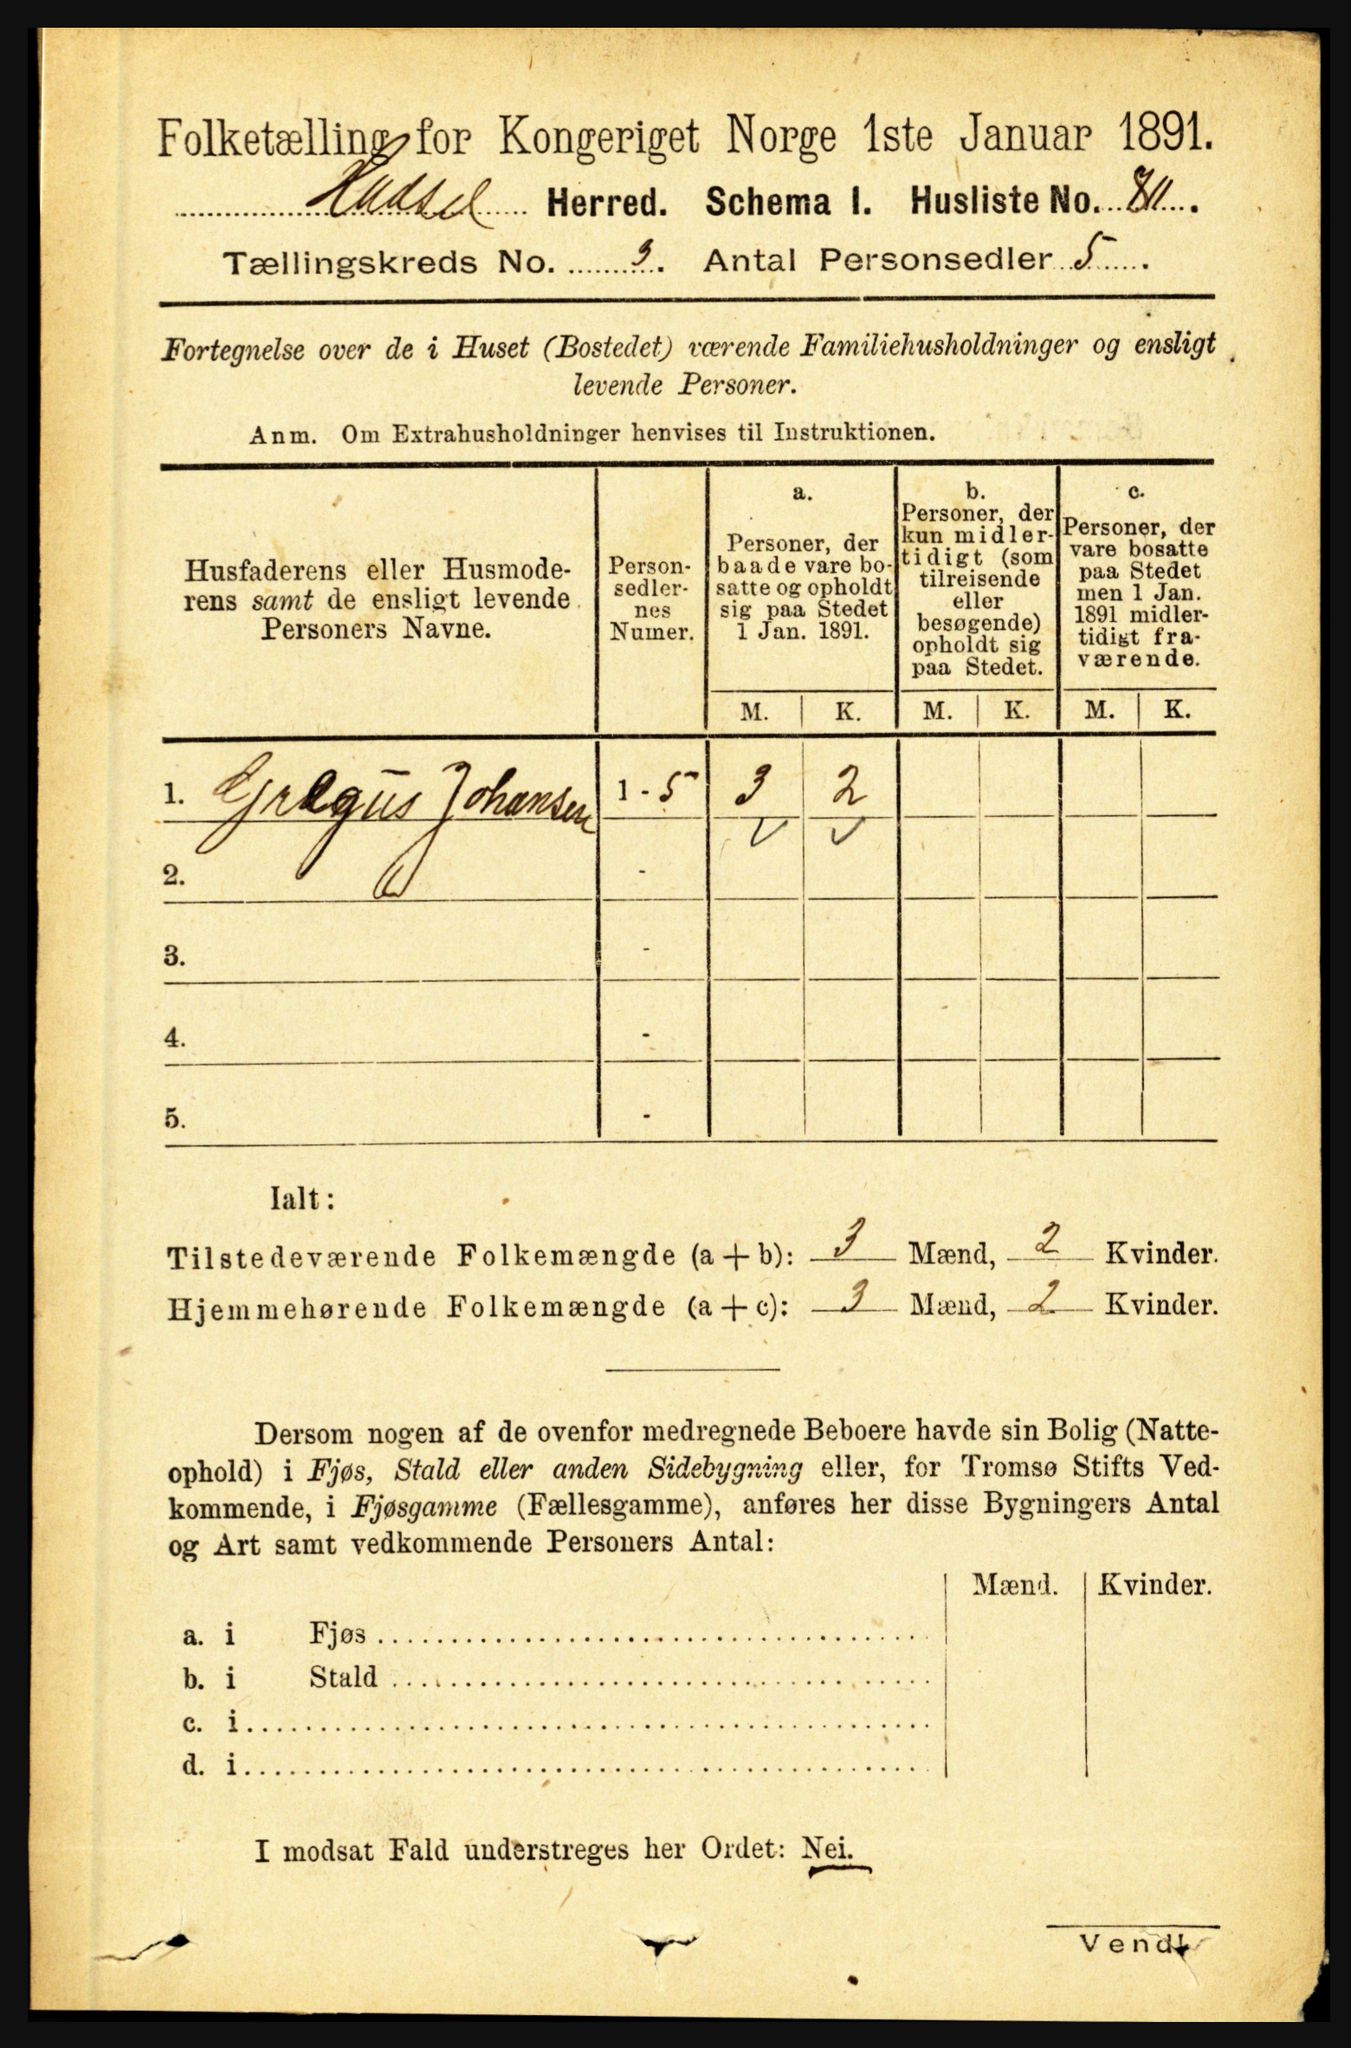 Folketælling for Kongeriget Norge 1ste Januar 1891.
Hadsel Herred. Schema I. Husliste No. 
Tællingskreds No. 3. Antal Personsedler 5.
Fortegnelse over de i Huset (Bostedet) værende Familiehusholdninger og ensligt
levende Personer.
Anm. Om Extrahusholdninger henvises til Instruktionen.
Husfaderens eller Husmode-
rens samt de ensligt levende
Personers Navne.
Person-
sedler-
nes
Numer.
a.
Personer, der
baade vare bo-
satte og opholdt
sig paa Stedet
1 Jan. 1891.
b.
Personer, der
kun midler-
tidigt (som
tilreisende
eller
besøgende)
opholdt sig
paa Stedet.
c.
Personer, der
vare bosatte
paa Stedet
men 1 Jan.
1891 midler-
tidigt fra-
værende.
M. K. M. K. M. K.
1. Gregus Johansen 1 - 5 3 2
2. -
3. -
4. -
5. -
Ialt:
Tilstedeværende Folkemængde (a + b): 3 Mænd, 2 Kvinder.
Hjemmehørende Folkemængde (a + c): 3 Mænd, 2 Kvinder.
Dersom nogen af de ovenfor medregnede Beboere havde sin Bolig (Natte-
ophold) i Fjøs, Stald eller anden Sidebygning eller, for Tromsø Stifts Ved-
kommende, i Fjøsgamme (Fællesgamme), anføres her disse Bygningers Antal
og Art samt vedkommende Personers Antal:
Mænd. Kvinder.
a. i Fjøs
b. i Stald
c. i
d. i
I modsat Fald understreges her Ordet: Nei.
Vend!